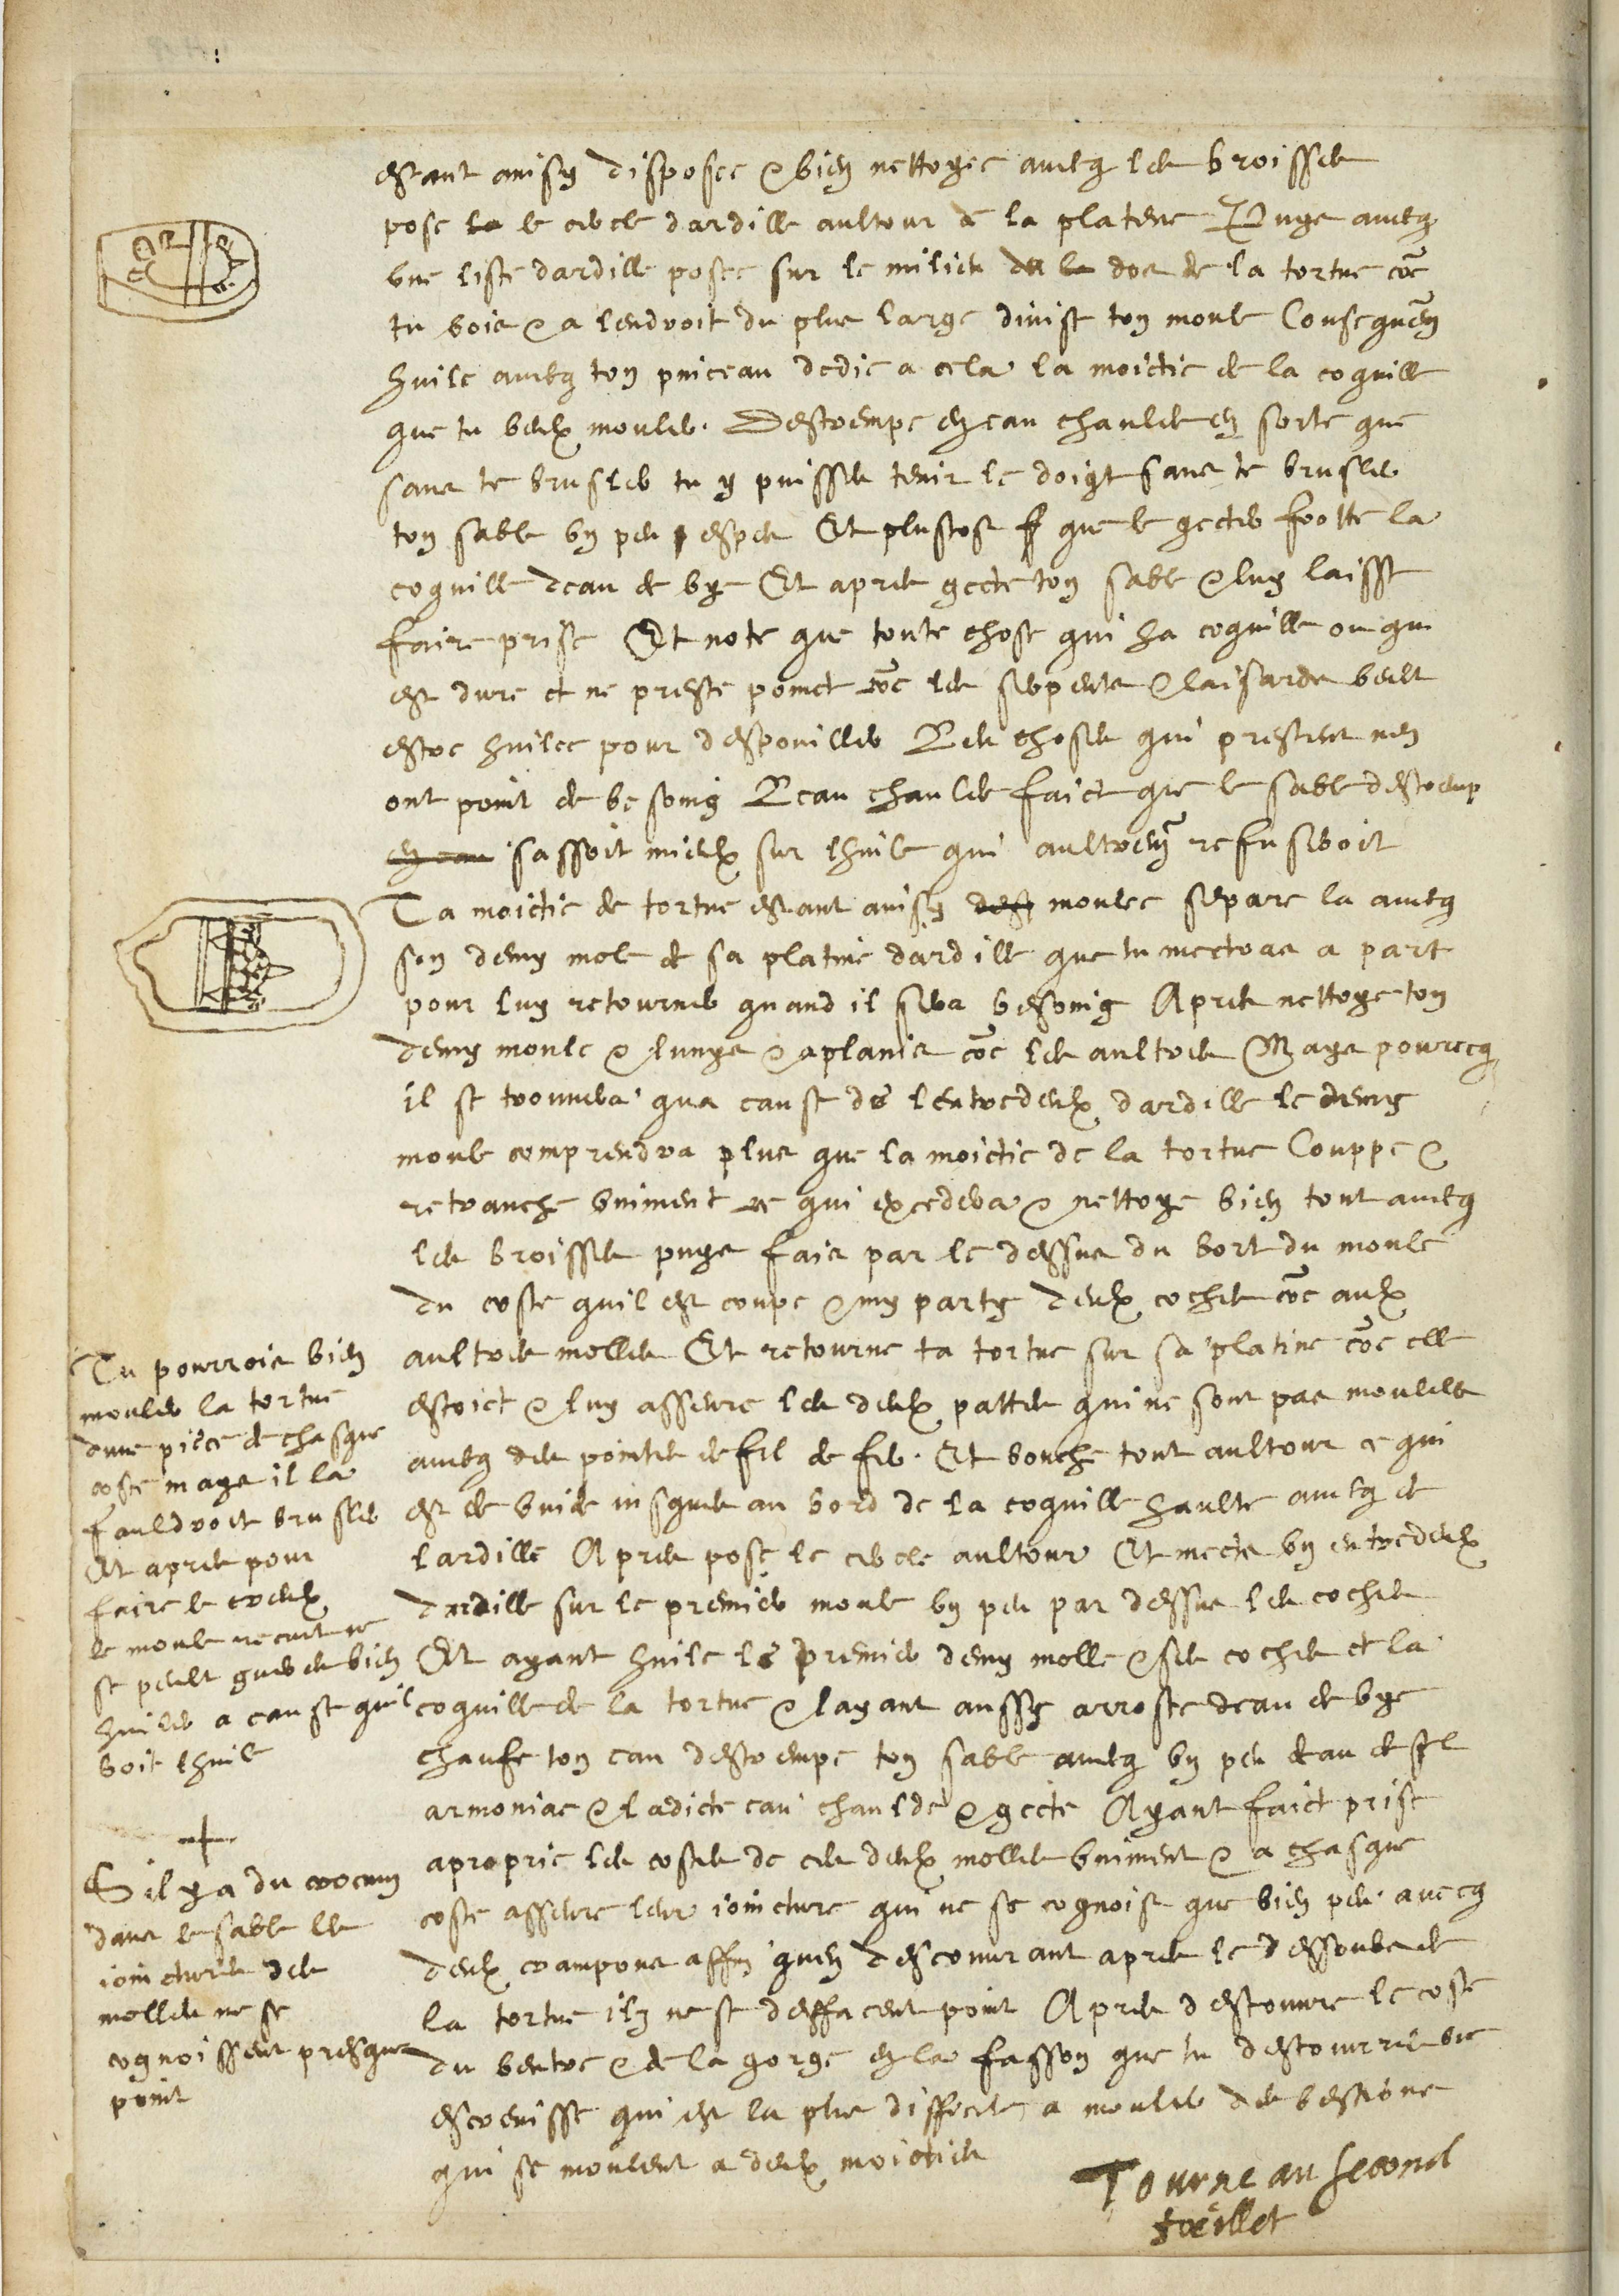 estant ainsy disposee & bien nettoyee aveq les broisses
pose la le cercle dardille aultour de la platene Puys aveq
une liste dardille posee sur le milieu du le dos de la tortue coe
tu vois & a lendroit du plus large divise ton moule Consequem
huile aveq ton pinceau dedie a cela la moictie de la coquille
que tu veulx mouler. Destrempe en eau chaulde en sorte que
sans te brusler tu y puisses tenir le doigt sans te brusler
ton sable un peu espes Et plustost que le gecter frotte la
coquille deau de vye Et apres gecte ton sable & luy laisse
faire prise Et note que toute chose qui ha coquille ou qui
est dure et ne preste poinct coe les serpents & laisards veult
estre huilee pour despouiller Les choses qui prestent nen
ont point de besoing Leau chaulde faict que le sable destremp
en eau sassoit mieulx sur lhuile qui aultrem refuseroit
Ta moictie de tortue estant ainsy des moulee separe la aveq
son demy mole de sa platine dardille que tu mectras a part
pour luy retourner quand il sera besoing Apres nettoye ton
demy moule & lunys & aplanis coe les aultres Mays pourceq
il se trouvera qua cause de lentredeulx dardille le demy
moule comprendra plus que la moictie de la tortue Couppe &
retranche uniment ce qui excedera & nettoye bien tout aveq
les broisses puys fais par le dessus du bort du moule
du coste quil est coupe & my party deulx coches coe aulx
aultres molles Et retourne ta tortue sur sa platine coe elle
estoict & luy asseure les deulx pattes qui ne sont pas moulees
aveq des pointes de fil de fer. Et bouche tout aultour ce qui
est de vuide iusques au bord de la coquille haulte aveq de
lardille Apres pose le cercle aultour Et mects un entredeulx
dardille sur le premier moule un peu par dessus les coches
Et ayant huile le premier demy molle & ses coches et la
coquille de la tortue & layant aussy arrosee deau de vye
chaufe ton eau destrempe ton sable aveq un peu deau de sel
armoniac & ladicte eau chaulde & gecte Ayant faict prise
aproprie les costes de ces deulx molles uniment & a chasque
coste asseure leur ioincture qui ne se cognoist que bien peu avecq
deulx crampons affin quen descouvrant apres le dessoubs de
la tortue ilz ne se deffacent point Apres descouvre le coste
du ventre & de la gorge en la fasson que tu descouvris une
escrevisse qui est la plus difficile a mouler des bestions
qui se moulent a deulx moicties
Tourne au second
foeillet
Tu pourrois bien
mouler la tortue
dune piece de chasque
coste mays il la
fauldroit brusler
Et apres pour
faire le creulx
le moule recuit ne
se peult gueres bien
huiler a cause quil
boit lhuile
+
Sil y a du crocum
dans le sable les
ioinctures des
molles ne se
cognoissent presque
point